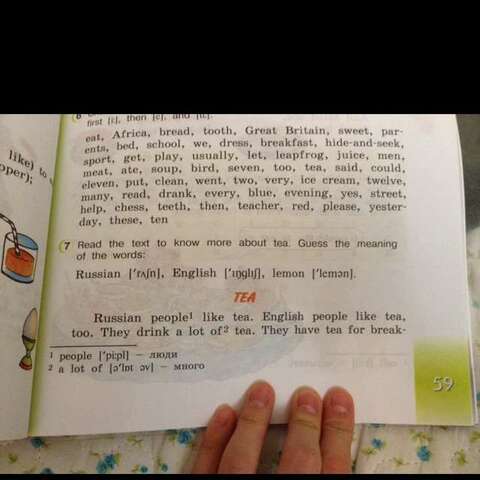 first [ɪ], then [e], and [i:].
eat, Africa, bread, tooth, Great Britain, sweet, par-
ents, bed, school, we, dress, breakfast, hide-and-seek,
sport, get, play, usually, let, leapfrog, juice, men,
meat, ate, soup, bird, seven, too, tea, said, could,
eleven, put, clean, went, two, very, ice cream, twelve,
many, read, drank, every, blue, evening, yes, street,
help, chess, teeth, then, teacher, red, please, yester-
day, these, ten
like) to
pper);
7 Read the text to know more about tea. Guess the meaning
of the words:
Russian ['rʌʃn], English ['ɪŋglɪʃ], lemon ['lemən].
TEA
Russian people¹ like tea. English people like tea,
too. They drink a lot of² tea. They have tea for break-
1 people ['pi:pl] – люди
2 a lot of [ə'lɒt əv] – много
59